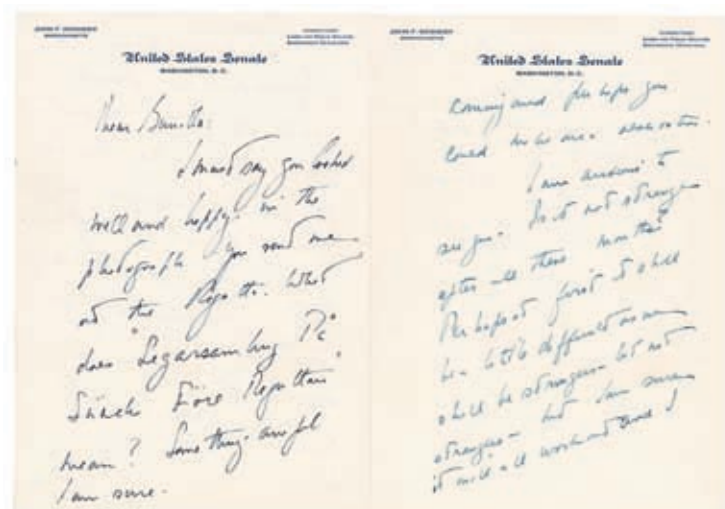 JOHN F. KENNEDY
MASSACHUSETTS
United States Senate
WASHINGTON, D.C.
Dear Gunilla:
I must say you looked
well and happy in the
photograph you sent me
at the Regatta. What
does "Segarsamling På
Sand Före Regattan"
mean? Something awful
I am sure.
JOHN F. KENNEDY
MASSACHUSETTS
United States Senate
WASHINGTON, D.C.
coming and perhaps you
could make a reservation.
I am anxious to
see you. Is it not strange
after all these months?
Perhaps at first it shall
be a little difficult as we
shall be strangers but not
strangers - but I am sure
it will all work and I